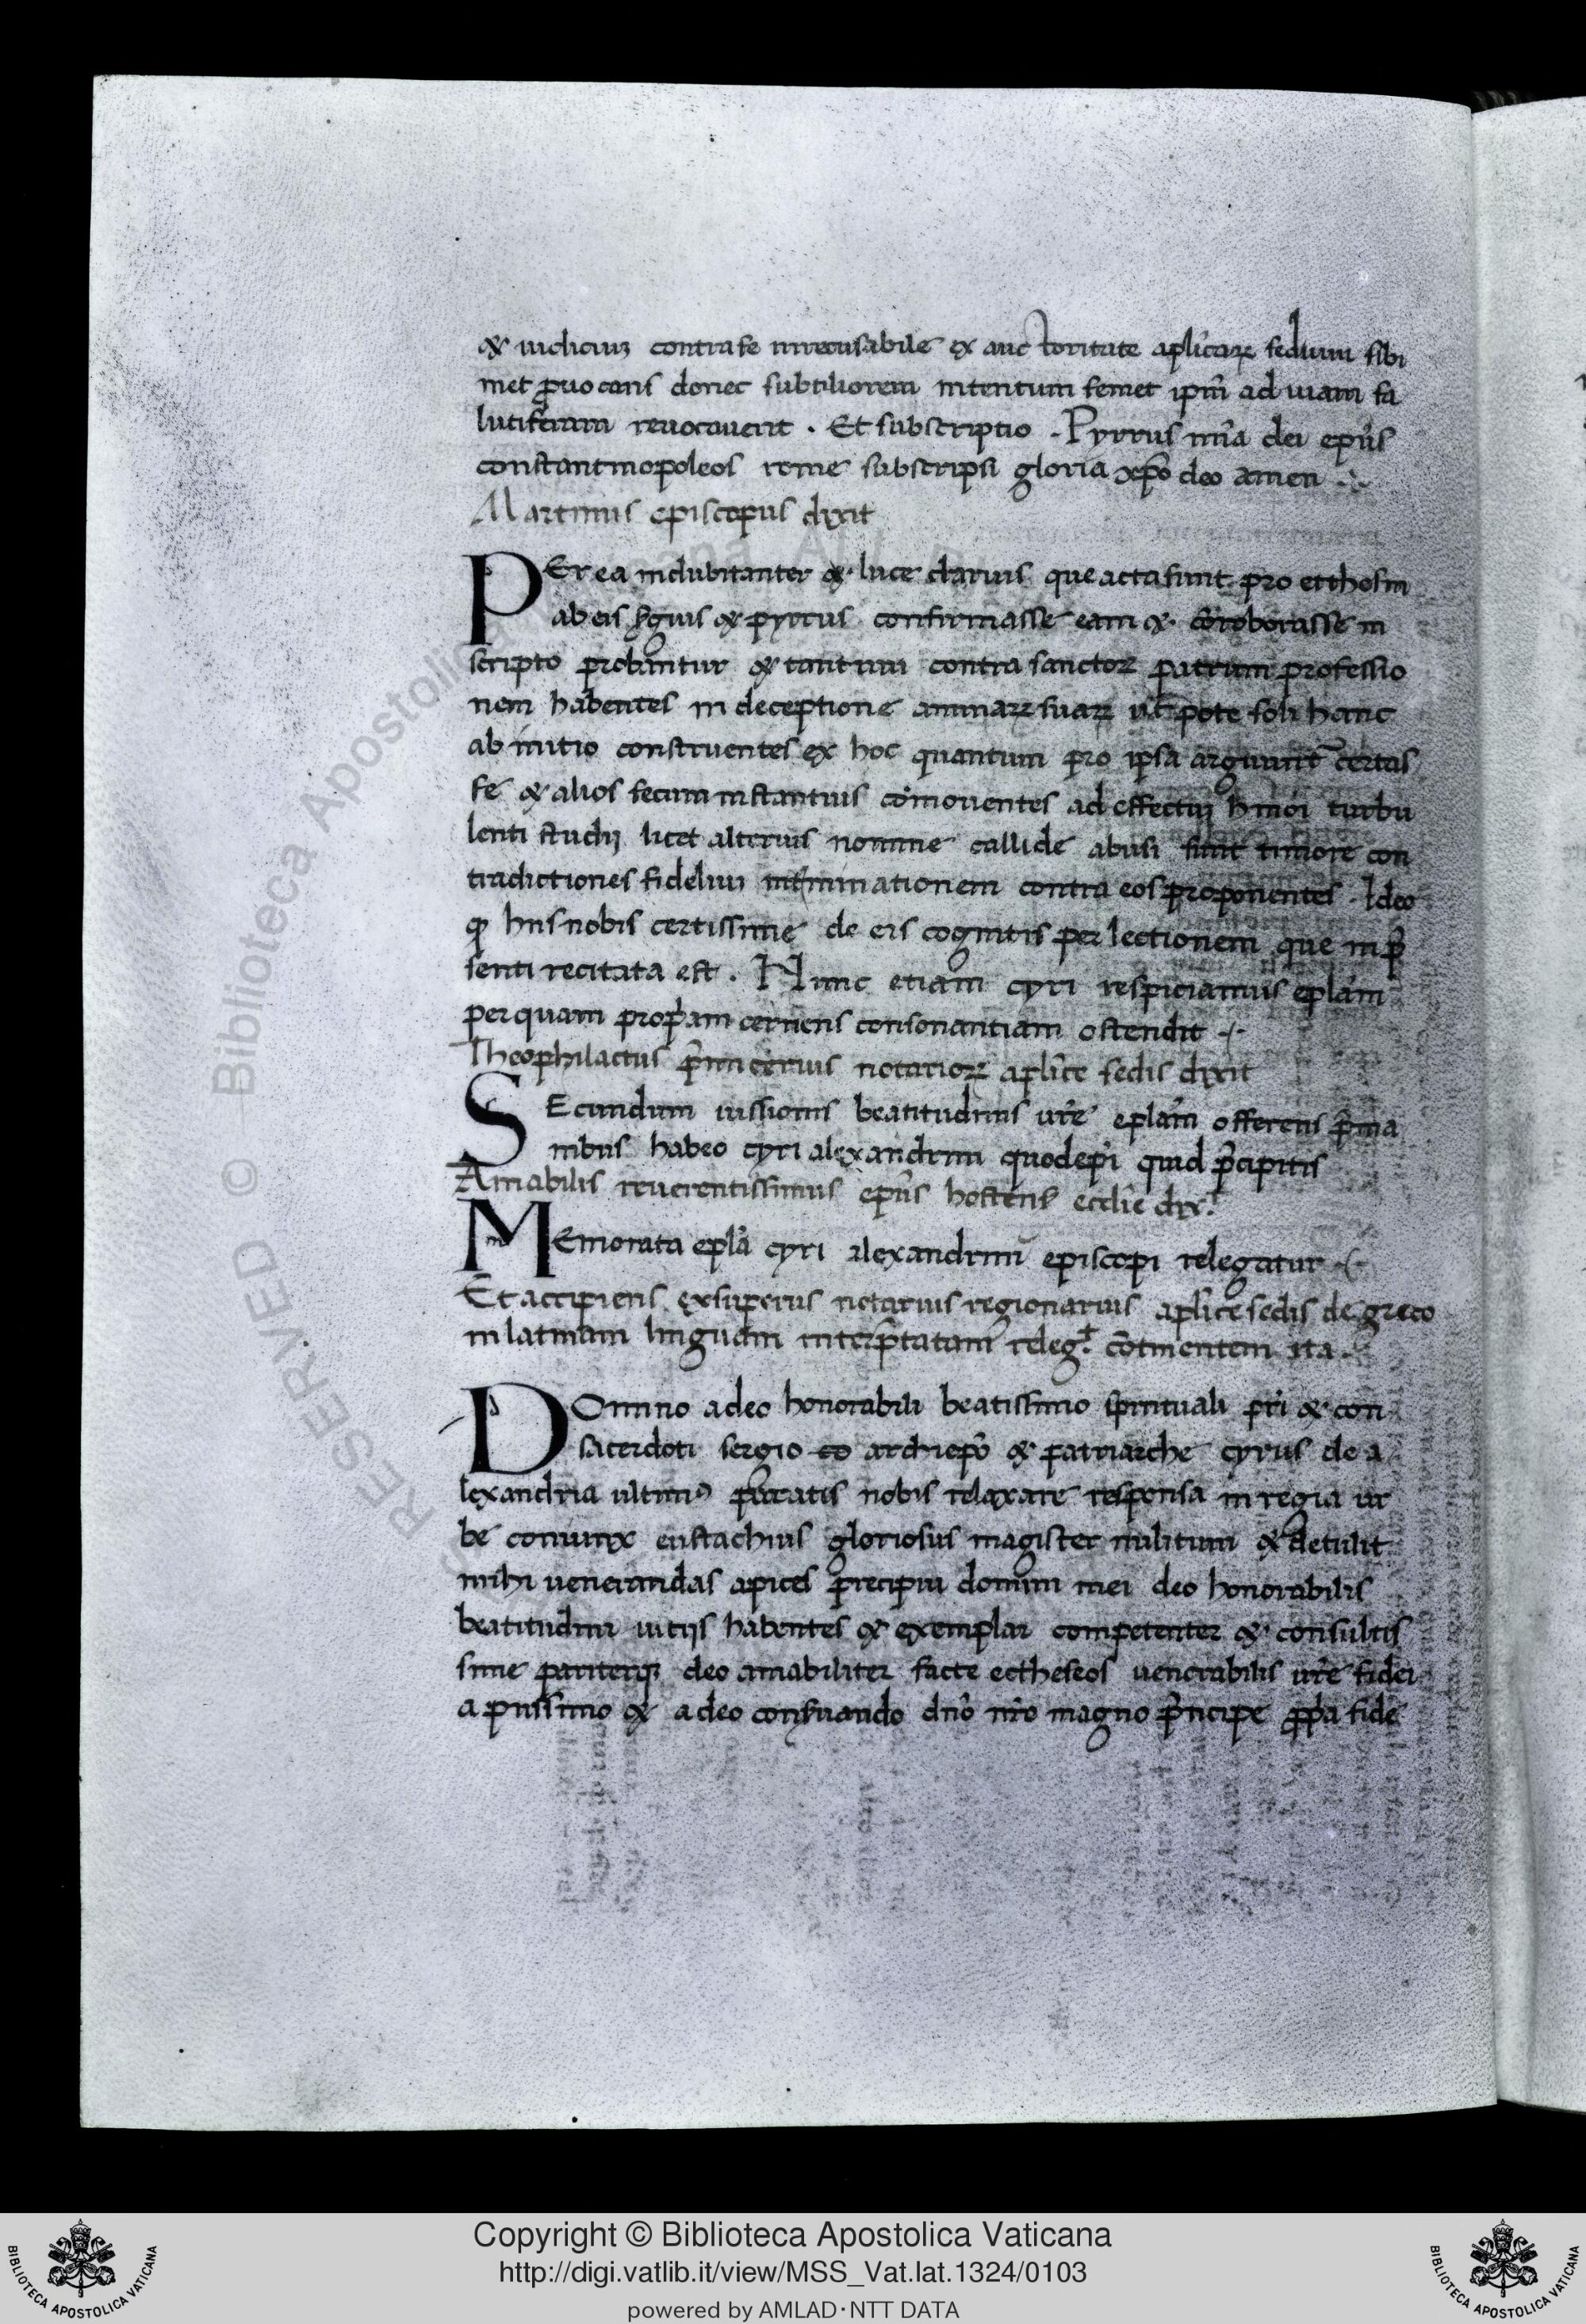 & iudiciuz contra se irrecusabile ex auctoritate aplicarꝝ sedium sibi
met ꝓuocans donec subtiliorem intentum semet ipm̄ ad uiam sa
lutiferam reuocauerit . Et subscriptio . Pyrrus mīa dei ep̄us
constantinopoleos rome subscripsi gloria xp̄o deo amen
Martinus episcopus dixit
PEr ea indubitanter & luce clarius que acta sunt pro ecthosin
ab eis ẜgius & pyrrus confirmasse eam & cōroborasse in
scripto probantur & tantum contra sanctoꝝ patrum professio
nem habentes in deceptione animaꝝ suaꝝ ut pote soli hanc
ab initio construentes ex hoc quantum pro ipsa arguunt̄ certas
se & alios secum instantius cōmouentes ad effectū hm̄oi turbu
lenti studij licet alterius nomine callide abusi sunt timore con
tradictiones fidelium int̄minationem contra eos proponentes . Ideo
qꝫ hiis nobis certissime de eis cognitis per lectionem que in p̄
senti recitata est . Nunc etiam cyri respiciamus eplām
per quam prop̄am cernens consonantiam ostendit
Theophilactus p̄micerius notarioꝝ aplīce sedis dixit
SEcundum iussionis beatitudinis ur̄e eplām offerens p̄ma
nibus habeo cyri alexandrini quodep̄i quid p̄cipitis
Amabilis reuerentissimus ep̄us hostens̄ eccl̄ie dix.ͭ
MEmorata eplā cyri alexandrini episcopi relegatur
Et accipiens exsuperus notarius regionarius aplīce sedis de greco
in latinam linguam interp̄tatam releg.ͭ cōtinentem ita .
DOmino a deo honorabili beatissimo spirituali pr̄i & con
sacerdoti sergio co archiep̄o & patriarche cyrus de a
lexandria ultimꝰ peccatis nobis relaxare responsa in regia ur
be coniunx eustachius gloriosus magister militum & detulit
mihi uenerandas apices precipiu domini mei deo honorabilis
beatitudini uitijs habentes & exemplar competenter & consultis
sime pariterqꝫ deo amabiliter facte ectheseos uenerabilis ur̄e fidei
a piissimo & a deo conẜuando dn̄o nr̄o magno p̄ncipe ꝓp̄a fide
Copyright © Biblioteca Apostolica Vaticana
http://digi.vatlib.it/view/MSS_Vat.lat.1324/0103
powered by AMLAD·NTT DATA